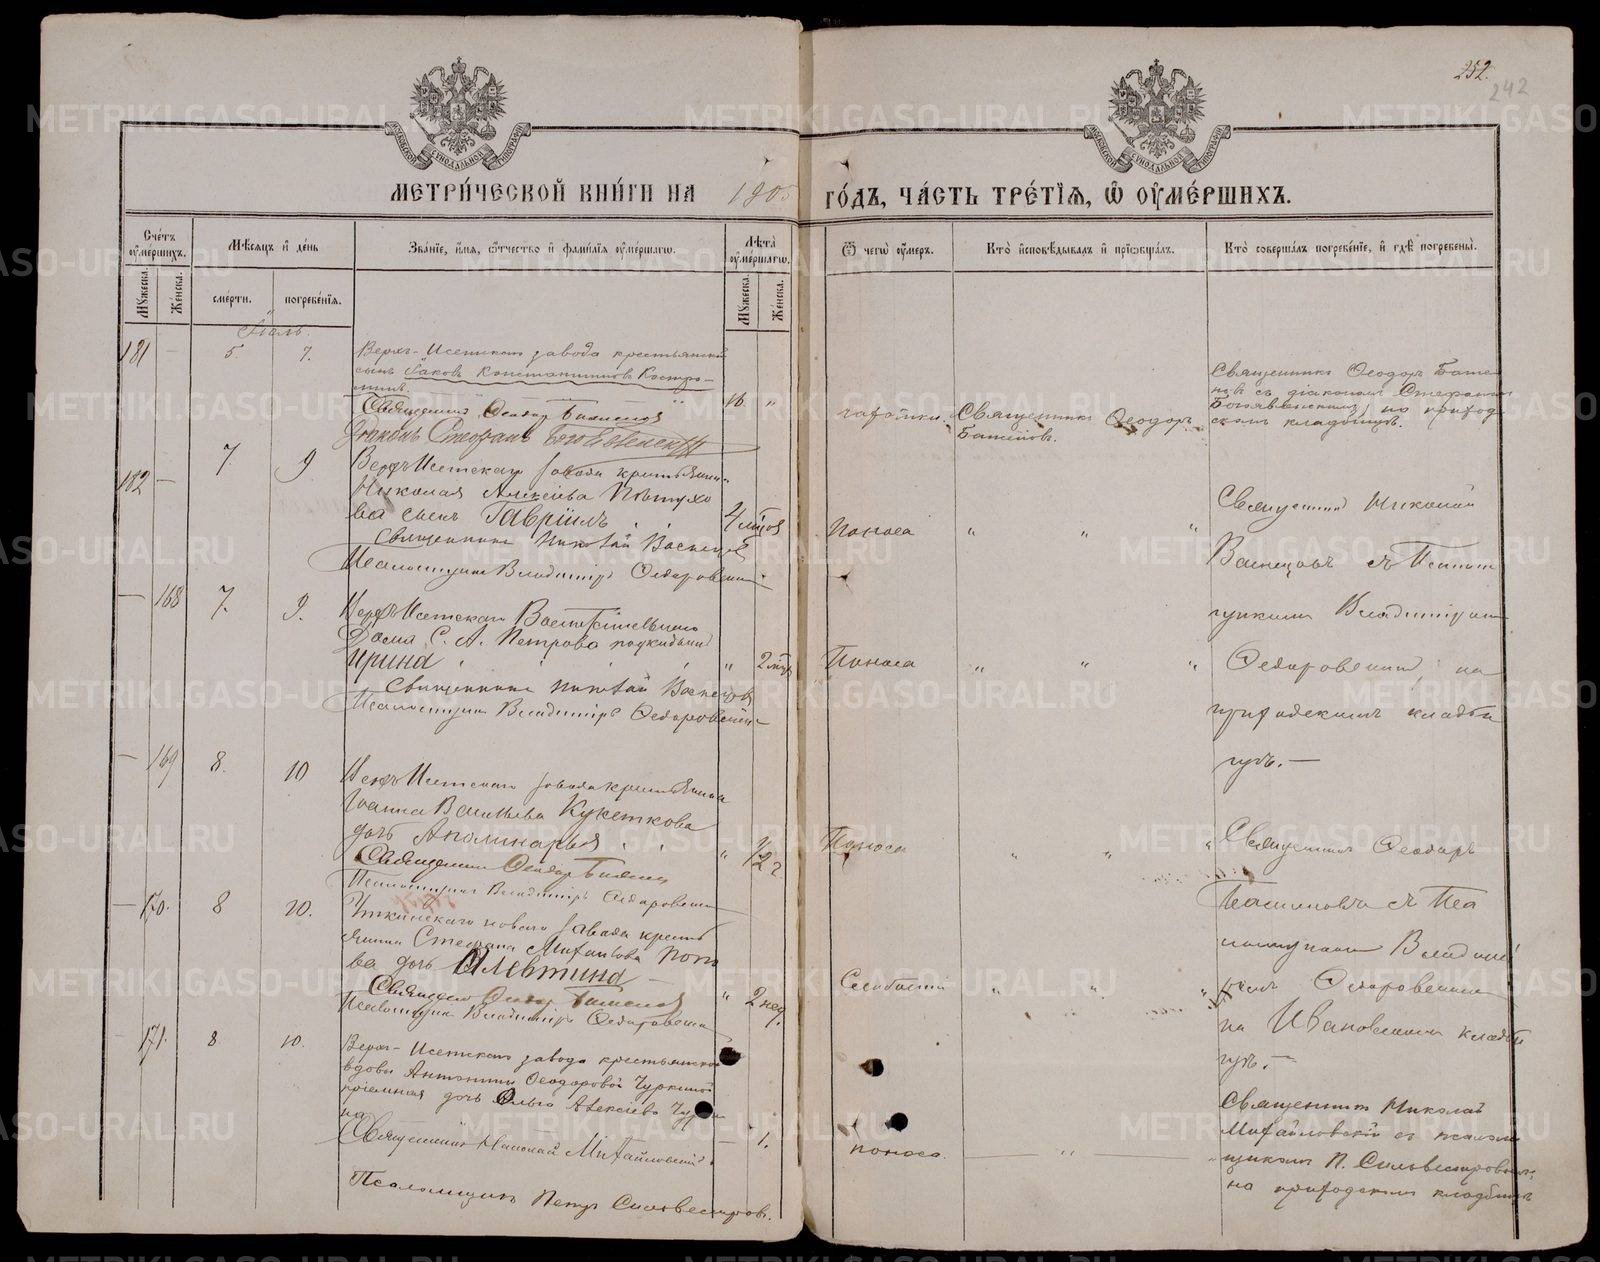 252.
242
МОСКОВСКОЙ СѴНОДАЛЬНОЙ ТИПОГРАФІИ
МОСКОВСКОЙ СѴНОДАЛЬНОЙ ТИПОГРАФІИ
МЕТРИ́ЧЕСКОЙ КНИ́ГИ НА 1905 ГО́ДЪ, ЧА́СТЬ ТРЕ́ТІѦ, Ѽ ОУМЕ́РШИХЪ.
Сче́тъ оумершихъ.
Мужеска.
Же́нска.
Мѣ́сѧцъ и де́нь
сме́рти.
погребе́нїѧ.
Зва́нїе, и́мѧ, ѻ́тчество и фами́лїѧ оуме́ршагѡ.
Лѣ́та оуме́ршагѡ.
Мужеска.
Же́нска.
Ѿ чегѡ̀ оу́меръ.
Кто̀ исповѣ́дывалъ и прїѡбща́лъ.
Кто̀ соверша́лъ погребе́нїе, и гдѣ̀ погребены̀.
Іюль.
181 — 5. 7.
Верхъ-Исетскаго завода крестьянскій
сынъ Іаковъ Константиновъ Костро-
минъ.
16. "
Священникъ Ѳеодоръ Баженовъ
Діаконъ Стефанъ Богоявленскій
чахотки.
Священникъ Ѳеодоръ
Баженовъ.
Священникъ Ѳеодоръ Баже-
новъ съ діакономъ Стефаномъ
Богоявленскимъ, на приход-
скомъ кладбищѣ.
182 — 7. 9
Верхъ Исетскаго завода крестьянина
Николая Алексіева Повтухо
ва сынъ Гавріилъ
4 мѣсяц.
Священникъ Николай Васнецовъ
Псаломщикъ Владиміръ Ѳедоровскій
Поноса " " "
Священникъ Николай
Васнецовъ съ Псалом
щикомъ Владиміромъ
Ѳедоровскимъ, на
приходскомъ кладби
щѣ. —
— 168 7. 9.
Верхъ Исетскаго Воспитательнаго
Дома С. А. Петрова подкидышъ
Ирина " 2 мѣс.
Священникъ Николай Васнецовъ
Псаломщикъ Владиміръ Ѳедоровскій
Поноса " " "
— 169 8. 10
Верхъ Исетскаго завода крестьянина
Іоанна Васильева Кукеткова
дочь Аполинарья " 1/2 г.
Священникъ Ѳеодоръ Баженовъ
Псаломщикъ Владиміръ Ѳедоровскій
Поноса " " "
Священникъ Ѳеодоръ
Баженовъ съ Пса
ломщикомъ Владимі
ромъ Ѳедоровскимъ
на Ивановскомъ кладби
щѣ. —
— 170. 8 10.
Уткинскаго новаго завода кресть
янина Стефана Михаилова Попо
ва дочь Алевтина —
" 2 нед.
Священникъ Ѳеодоръ Баженовъ
Псаломщикъ Владиміръ Ѳедоровскій
Слабости " " "
— 171. 8 10.
Верхъ-Исетскаго завода крестьянской
вдовы Антонины Ѳеодоровой Чуркиной
пріемная дочь Ольга Алексіева Чурки
на
— 1.
Священникъ Николай Михайловскій.
Псаломщикъ Петръ Сильвестровъ.
поноса. — " — "
Священникъ Николай
Михайловскій съ псалом
щикомъ П. Сильвестровымъ,
на приходскомъ кладбищѣ
METRIKI.GASO-URAL.RU